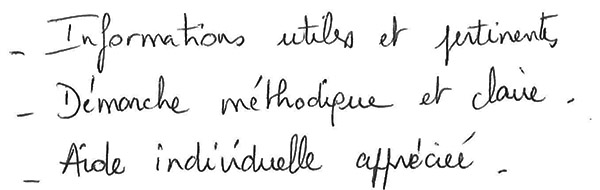 - Informations utiles et pertinentes
- Démarche méthodique et claire.
- Aide individuelle appréciée.